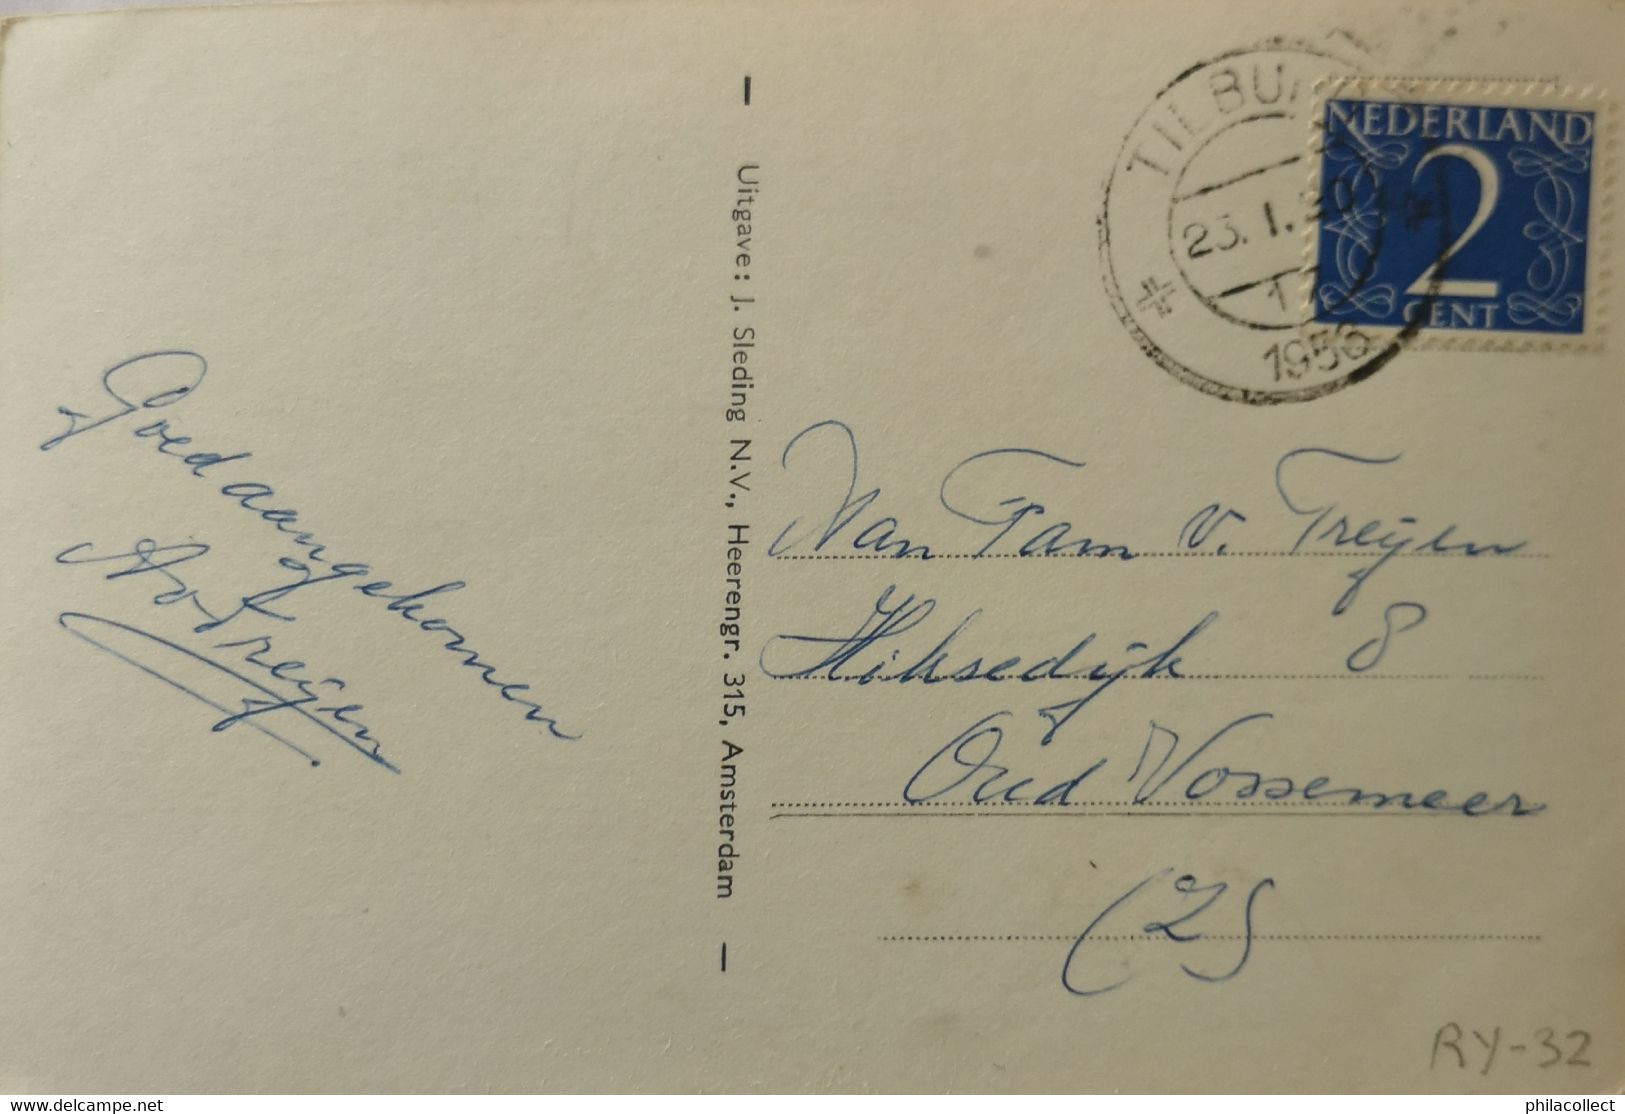 Goed aangekomen
A v Treijen
— Uitgave: J. Sleding N.V., Heerengr. 315, Amsterdam —
TILBURG
23.1.20
17
1956
NEDERLAND
2
CENT
Aan Fam v. Treijen
Hiksedijk 8
Oud Vossemeer
(Z)
RY-32
http://www.delcampe.net
philacollect